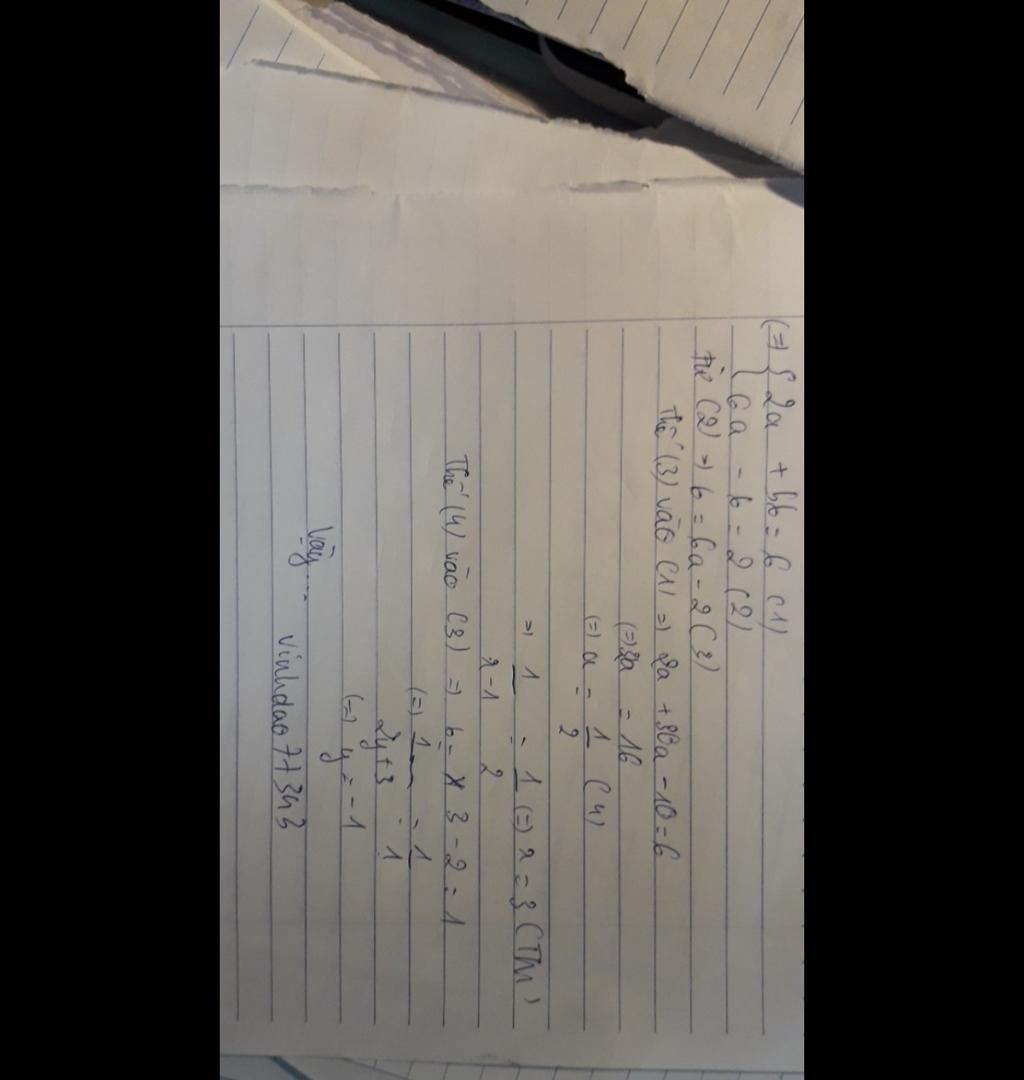 (=) { 2a + 5b = 6 (1)
{ 6a - b = 2 (2)
Từ (2) => b = 6a - 2 (3)
Thế (3) vào (1) => 2a + 30a - 10 = 6
(=) 32a = 16
(=) a = 1/2 (4)
=> 1/x-1 = 1/2 (=) x = 3 (TM)
Thế (4) vào (3) => b = 3 - 2 = 1
(=) 1/2y+3 = 1/1
(=) y = -1
Vậy...
vinhdao77343